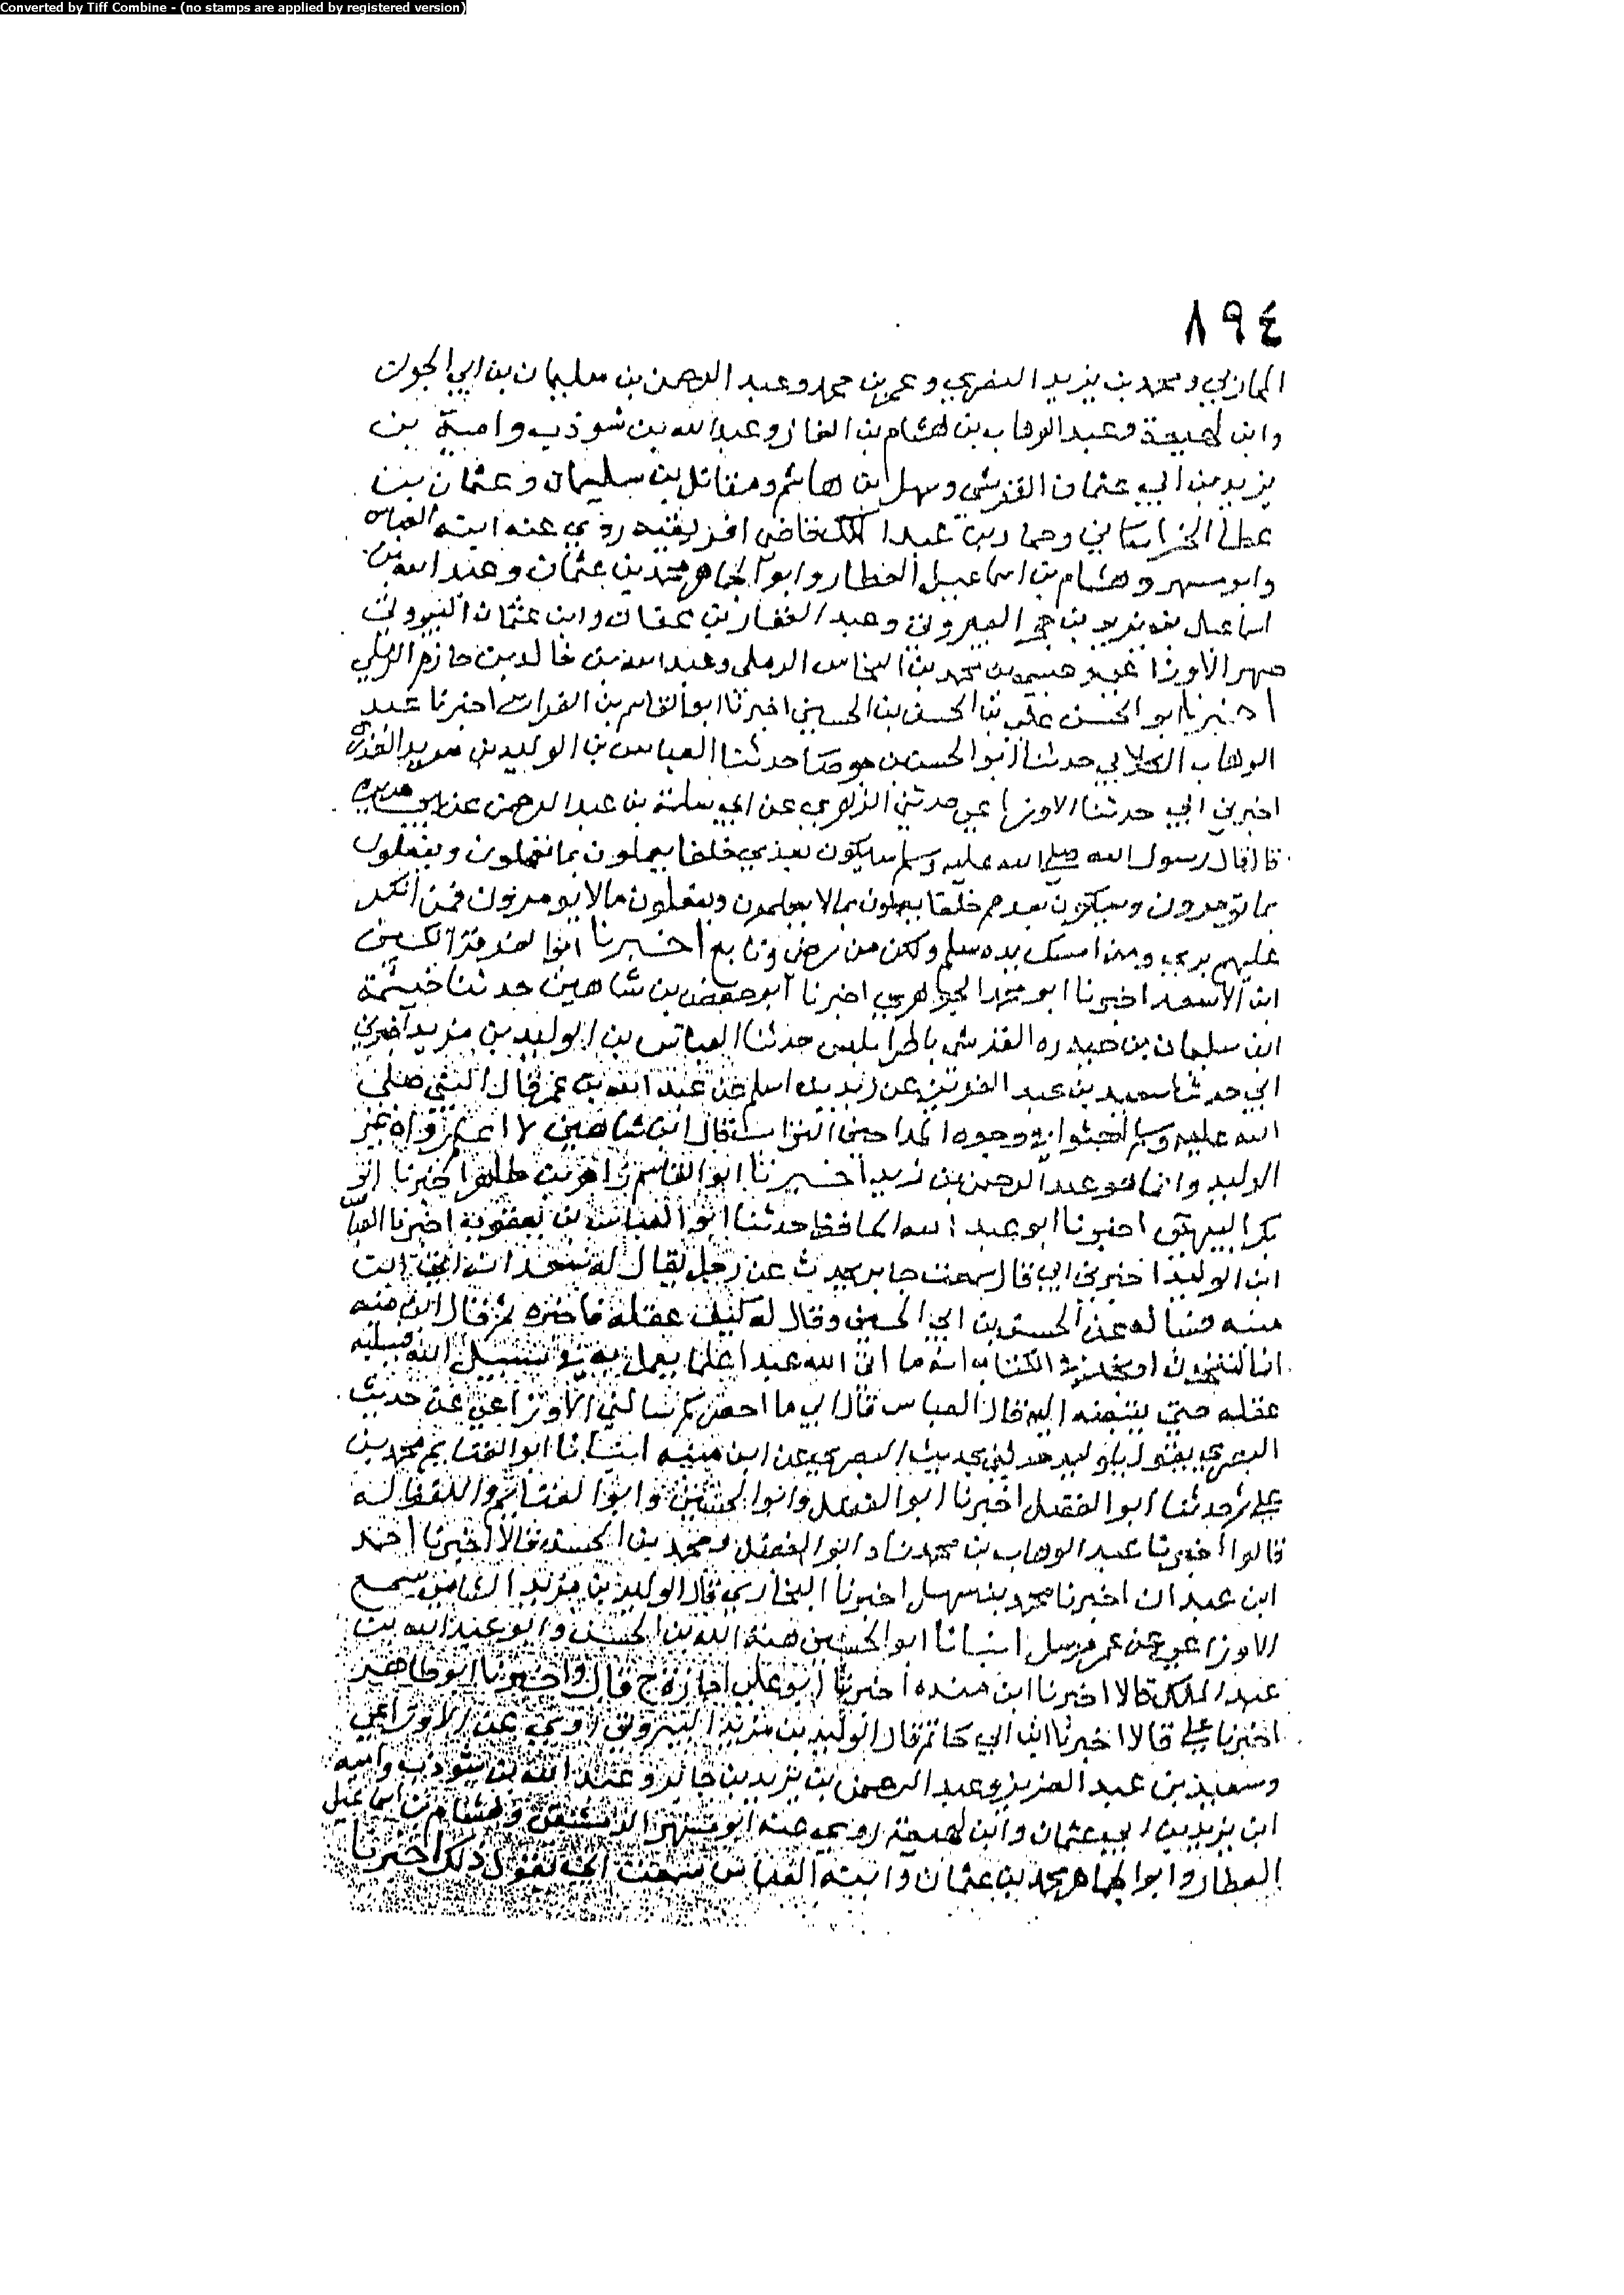 Converted by Tiff Combine - (no stamps are applied by registered version)
٨٩٤
المازني ومحمد بن يزيد النصري وعمر بن محمد وعبد الرحمن بن سليمان بن ابي الجون
وابن لهيعة وعبد الوهاب بن هشام بن الغاز وعبد الله بن شوذب وامية بن
يزيد بن ابي عثمان القرشي وسهل بن هاشم ومقاتل بن سليمان وعثمان بن
عطا الخراساني وحماد بن عبد الملك قاضي افريقية روى عنه ابنه العباس
وابو مسهر وهشام بن اسماعيل العطار وابو الجماهر محمد بن عثمان وعبد الله بن
اسماعيل بن يزيد بن حجر البيروتي وعبد الغفار بن عفان وابن عثمان البيروتي
صهر الاوزاعي وعيسى بن محمد بن النحاس الرملي وعبد الله بن خالد بن حازم الرملي
اخبرنا ابو الحسن علي بن الحسن بن الحسين اخبرنا ابو القاسم بن الفرات اخبرنا عبد
الوهاب الكلابي حدثنا ابو الحسن بن جوصا حدثنا العباس بن الوليد بن مزيد العذري
اخبرني ابي حدثنا الاوزاعي حدثني الزهري عن ابي سلمة بن عبد الرحمن عن ابي هريرة
قال قال رسول الله صلى الله عليه وسلم سيكون بعدي خلفا يعملون بما يعملون ويفعلون
بما يؤمرون وسيكون بعدهم خلفا يعملون بما لا يعلمون ويفعلون ما لا يومرون فمن انكر
عليهم بري ومن امسك يده سلم ولكن من رضي وتابع اخبرنا ابو
ابن الاسعد اخبرنا ابو محمد الجوهري اخبرنا ابو حفص بن شاهين حدثنا خيثمة
ابن سليمان بن حيدره القرشي باطرابلس حدثنا العباس بن الوليد بن مزيد اخبرني
ابي حدثنا سعيد بن عبد العزيز عن زيد بن اسلم عن عبد الله بن عمر قال النبي صلى
الله عليه وسلم احثوا في وجوه المداحين التراب قال ابن شاهين لا اعلم رواه غير
الوليد وانما هو عبد الرحمن بن زيد اخبرنا ابو القاسم زاهر بن طاهر اخبرنا ابو
بكر البيهقي اخبرنا ابو عبد الله الحافظ حدثنا ابو العباس بن يعقوب اخبرنا العباس
ابن الوليد اخبرني ابي قال سمعت جابر يحدث عن رجل يقال له ابن
منبه فساله عن الحسن بن ابي الحسن وقال له كيف عقله فاخبره ثم قال ابن منبه
انا لنتحدث او نجد في الكتاب انه ما اتى الله عبدا علما يعمل به في سبيل الله فيسلبه
عقله حتى يقبضه اليه قال العباس قال ابي ما احصي كم سالني الاوزاعي عن حديث
البصري يقول يا وليد حدثني بحديث البصري عن ابن منبه انبانا ابو الغنايم محمد بن
علي ثم حدثنا ابو الفضل اخبرنا ابو الفضل وابو الحسين وابو الغنايم واللفظ له
قالوا اخبرنا عبد الوهاب بن محمد زاد ابو الفضل ومحمد بن الحسن قالا اخبرنا احمد
ابن عبدان اخبرنا محمد بن سهل اخبرنا البخاري قال الوليد بن مزيد الشامي سمع
الاوزاعي عن عمر مرسل انبانا ابو الحسين هبة الله بن الحسن وابو عبد الله بن
عبد الملك قالا اخبرنا ابن منده اخبرنا ابو علي اجازة ح قال واخبرنا ابو طاهر
اخبرنا علي قالا اخبرنا ابن ابي حاتم قال الوليد بن مزيد البيروتي روى عن الاوزاعي
وسعيد بن عبد العزيز وعبد الرحمن بن يزيد بن جابر وعبد الله بن شوذب وامية
ابن يزيد بن ابي عثمان وابن لهيعة روى عنه ابو مسهر الدمشقي وهشام بن اسماعيل
العطار وابو الجماهر محمد بن عثمان وابنه العباس سمعت ابي يقول ذلك اخبرنا